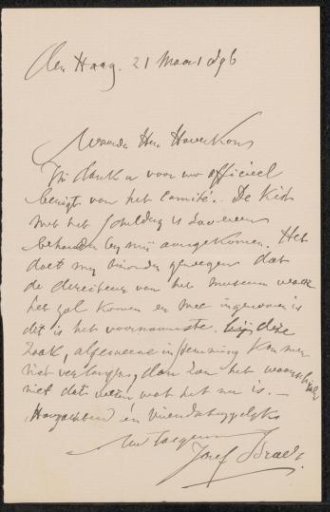 Den Haag. 21 Maart 96
Waarde Heer Haverkorn
Ik dank u voor uw officieel
berigt van het comité. De Kist
met het schilderij is
behouden bij mij aangekomen. Het
doet mij genoegen dat
de directeur van het museum waar
het zal komen er mee ingenomen is
dit is het voornaamste. bij deze
zaak, algemeene instemming kan men
niet verlangen, dan zou het
niet dat weten wat het nu is. —
Hoogachtend en vriendschappelijk
Jozef Israëls